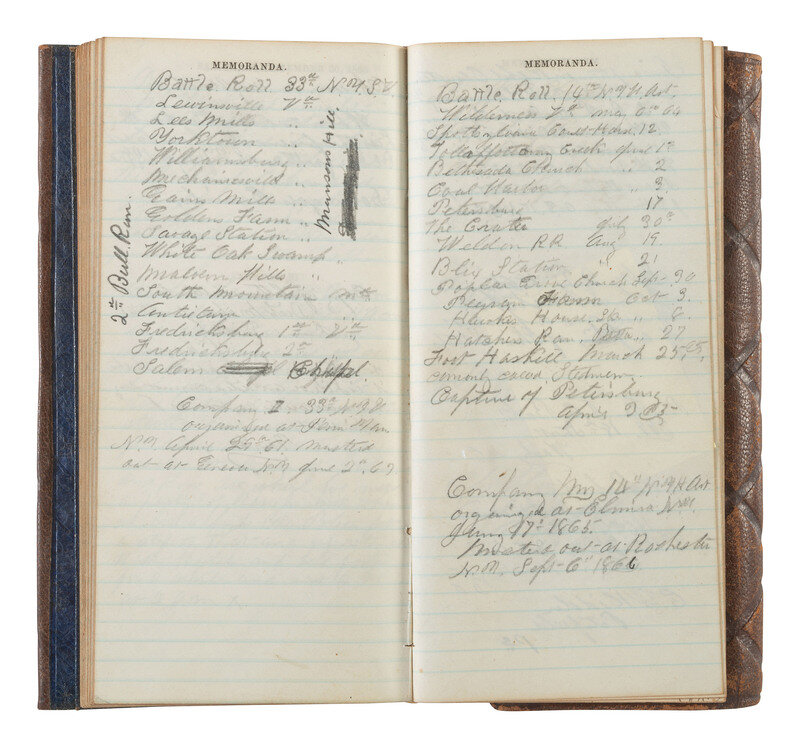 MEMORANDA.
Battle Roll 33rd N.Y.S.V.
Lewinsville Va
Lees Mills "
Yorktown "
Williamsburg "
Mechanicsvill "
Gains Mills "
Goldens Farm "
Savage Station "
White Oak Swamp "
Malvern Hills "
South Mountain Md
Antietam "
Fredricksburg 1st Va
Fredricksburg 2d
Salem Chapel.
Munsons Hill.
2nd Bull Run.
Company I 33d N.Y.V.
organized at
N.Y. April 29th 61. Musterd
out at Geneva N.Y. June 2d. 63
MEMORANDA.
Battle Roll 14th N.Y.H. Art.
Wilderness Va. May 6th 64
Spotsylvania Court House. 12.
Creek June 1st
Bethsada Church " 2
Coal Harbor " 3
Petersburg 17
The Crater July 30th
Weldon R.R. Aug 19
Station " 21
Poplar Grove Church Sept. 30
Peegram Farm Oct 3.
House. " 8.
Hatchers Run. " 27
Fort Haskell March 25 65.
comonly caled Stedmen
Capture of Petersburg
April 3 65
Company 14th N.Y.H. Art
organized at Elmira N.Y.
17th 1865.
Musterd out at Rochester
N.Y. Sept 6th 1866